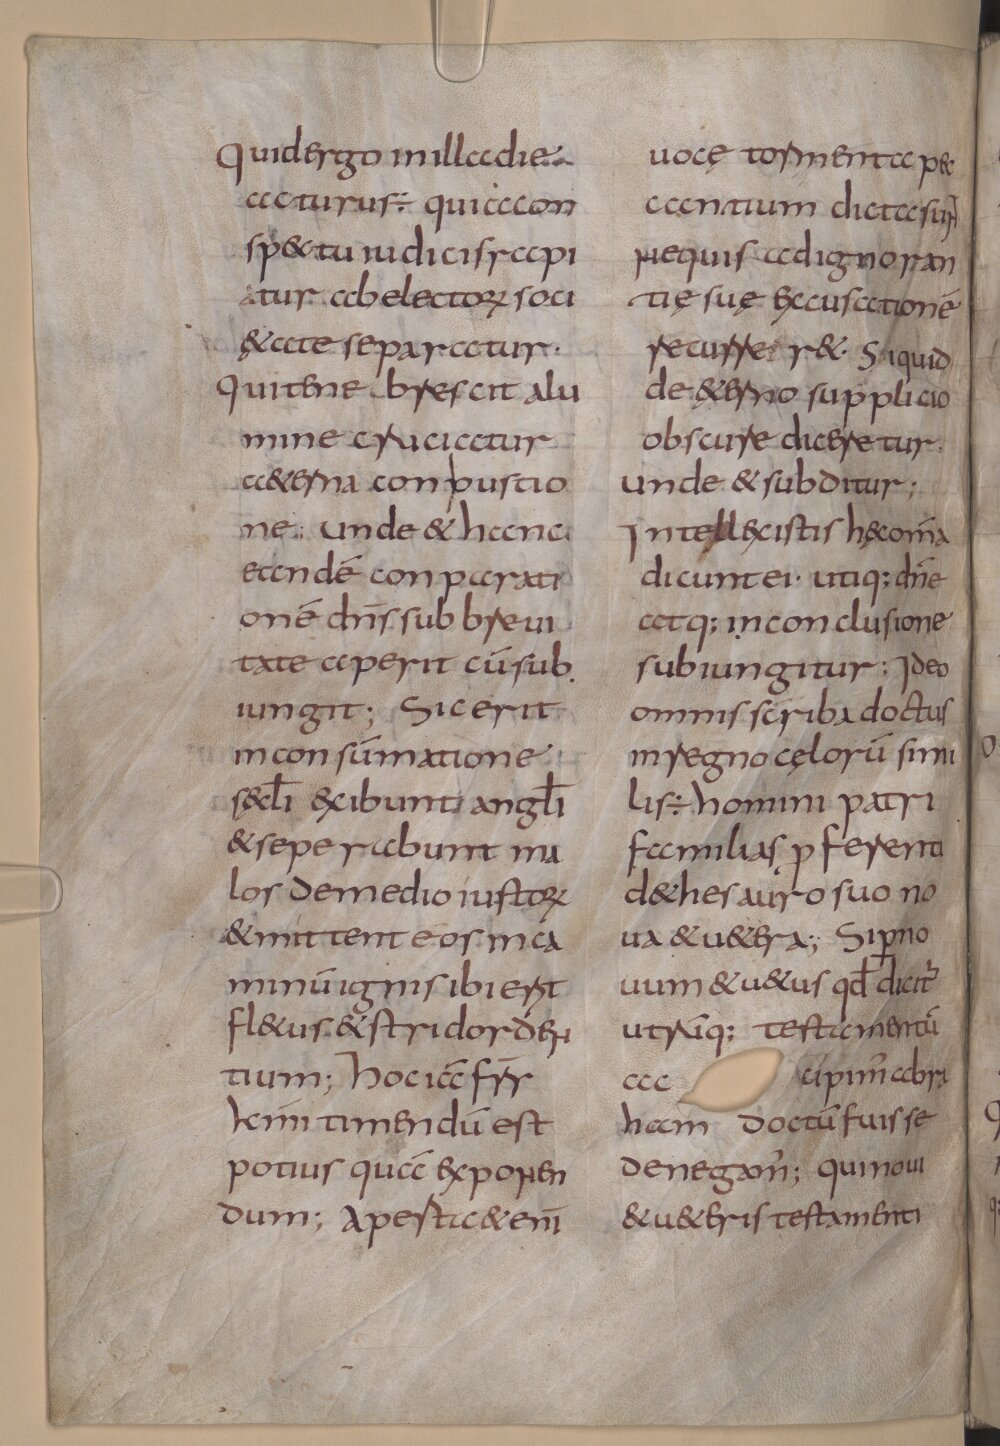 Quid ergo in illa die
acturus÷ qui a con
spectu iudicis rapi
tur ab electorꝝ soci
&ate separatur·
Qui tene brescit alu
mine cruciatur
a&erna conbustio
ne; Unde & hanc
eandē conparati
onē dn̄s sub breui
tate aperit cū sub
iungit; Sic erit
in consūmatione
sęcl̄i exibunt angl̄i
& seperabunt ma
los de medio iustorꝝ
& mittent eos in ca
minū ignis ibi erit
fl&us & stridor den
tium; Hoc iā fr̄r
kmi timendū est
potius quā exponen
dum; Aperta & eni
uocę tormenta pec
cantium dicta sun̄t
nequis ad ignoran
tię suę excusationē
recurrer&· Si quid
de &erno supplicio
obscure diceretur·
Unde & subditur;
Intellexistis hęc om̄a
dicunt ei· utiq; dn̄e
atq; in conclusione
subiungitur; Ideo
omnis scriba doctus
in regno cęlorū simi
lis÷ homini patri
familias ꝓferenti
de thesauro suo no
ua & u&era; Si ꝑ no
uum & u&us qd̄ dicit᷑
utrūq; testamentū
acc cipim᷑ abra
ham doctū fuisse
denegam᷑; qui noui
& u&eris testamenti